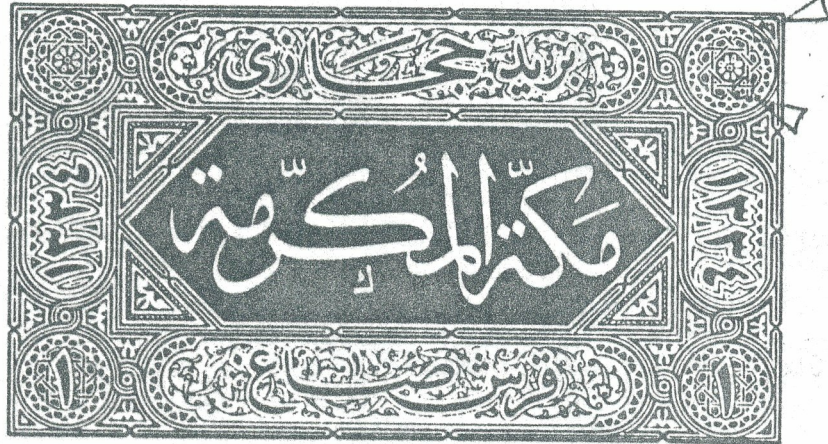 بريد حجازى
١٣٣٤ مكّة المكرّمة ١٣٣٤
١ قرش صاغ ١